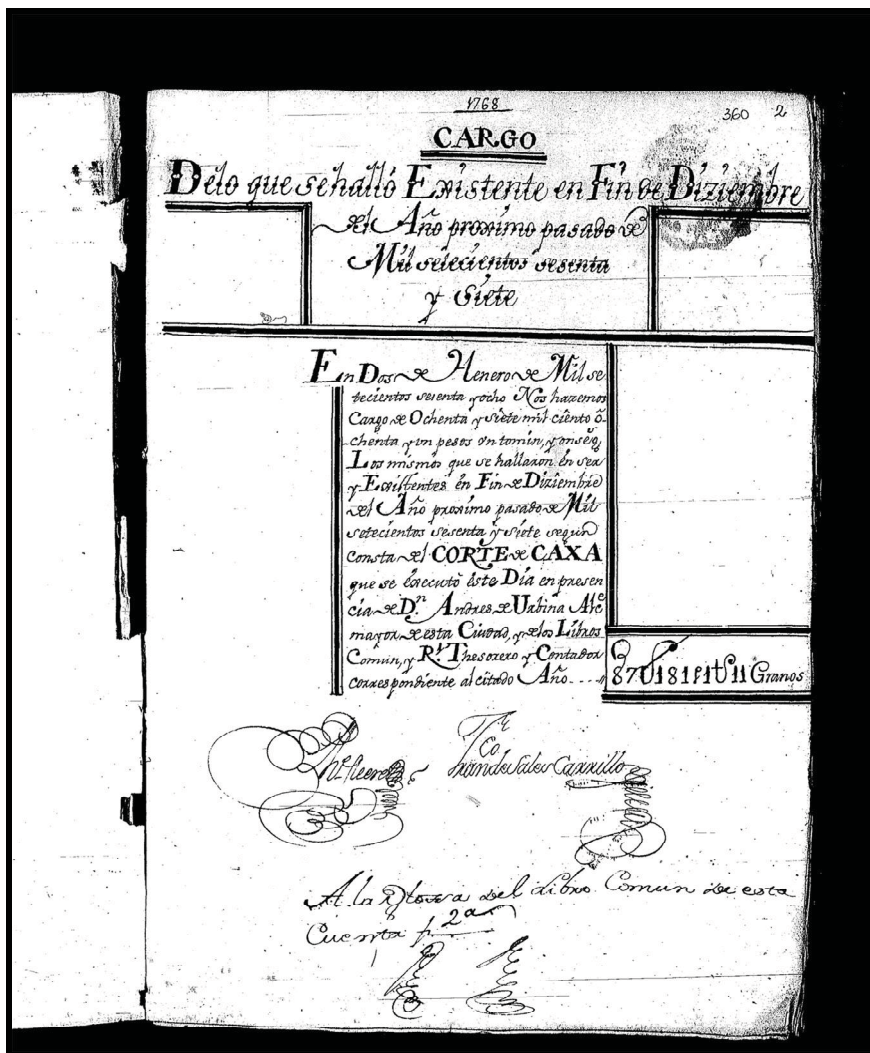 1768
360 2
CARGO
Delo que se halló Existente en Fin de Diziembre
del Año proximo pasado de
Mil setecientos sesenta
y Siete
En Dos de Henero de Mil se
tecientos sesenta y ocho Nos hazemos
Cargo de Ochenta y siete mil ciento õ-
chenta y un pesos un tomin, y onse g.
Los mismos que se hallaron en ser
y Existentes en Fin de Diziembre
del Año proximo pasado de Mil
setecientos sesenta y siete segun
consta del CORTE de CAXA
que se èxecutò èste Dia en presen
cia de D.n Andres de Urbina Alc.e
mayor de esta Ciudad, y delos Libros
Comun, y R.l Thesorero y Contador
correspondiente al citado Año
87U181p1t11 Granos
Fran.co de Sales Carrillo
A la del Libro Comun de esta
Cuenta f. 2a